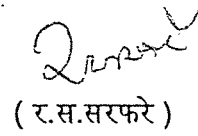 ( र.स.सरफरे )